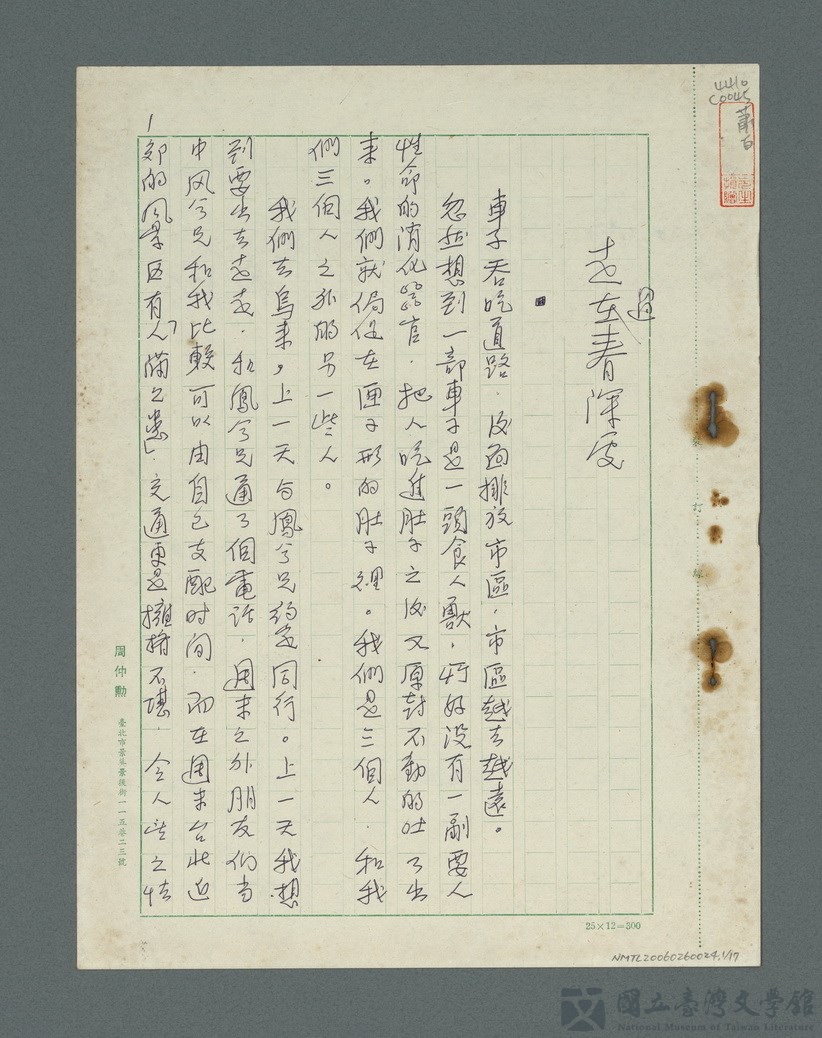 走過在春深處
車子吞吃道路，後面排放市區，市區越去越遠。
忽然想到一部車子是一頭食人獸，將好沒有一副要人
性命的消化器官，把人吃進肚子之後又原封不動的吐了出
來。我們就侷促在匣子形的肚子裡。我們是三個人，和我
們三個人之外的另一些人。
我們去烏來，上一天与鳳兮兄約定同行。上一天我想
到要出去走走，和鳳兮兄通了個電話，週末之外朋友们当
中风兮兄和我比較可以由自己支配时间，而在週末台北近
郊的风景区有「人滿之患」，交通更是擁擠不堪，令人望之怯
1
周仲勳
臺北市景美景後街一一五巷二三號
25×12=300
打
線
4410
C0045
蕭白
NMTL20060260024.1/17
國立臺灣文學館
National Museum of Taiwan Literature